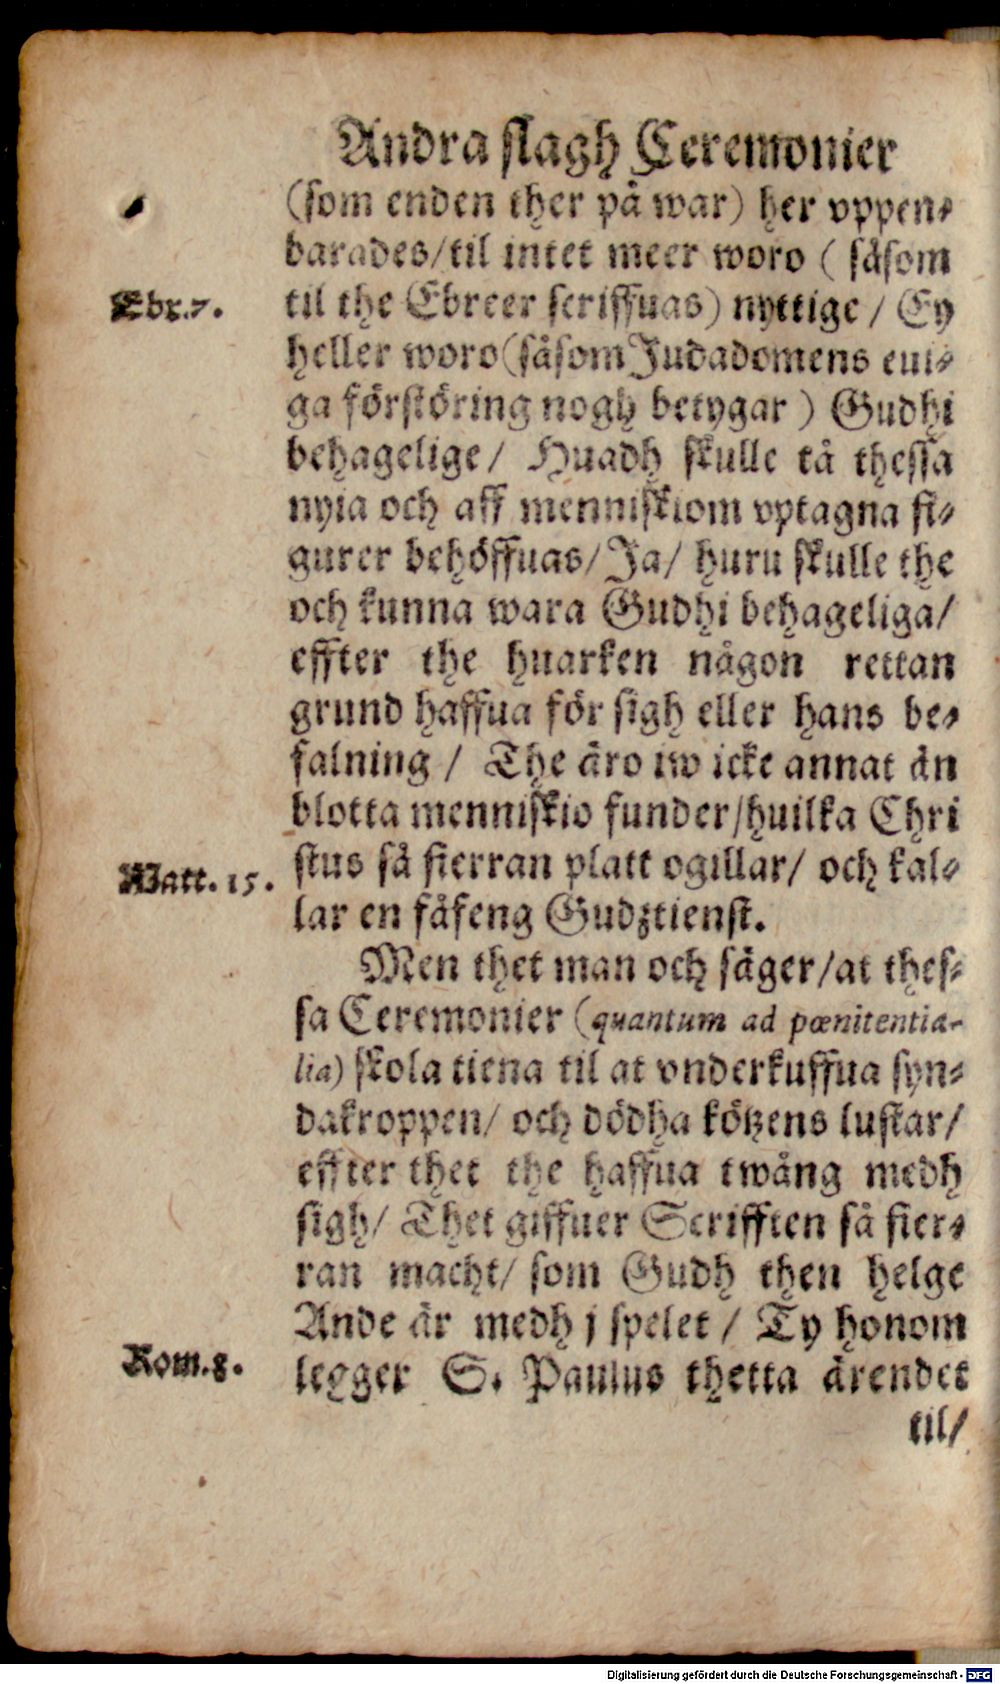 Andra slagh Ceremonier
(som enden ther på war) her vppen-
barades/til intet meer woro ( såsom
Ebr.7.
til the Ebreer scriffuas) nyttige / Ey
heller woro(såsom Judadomens eui-
ga förstöring nogh betygar ) Gudhi
behagelige/ Huadh skulle tå thessa
nyia och aff menniskiom vptagna fi-
gurer behöffuas/Ja/ huru skulle the
och kunna wara Gudhi behageliga/
effter the huarken någon rettan
grund haffua för sigh eller hans be-
falning / The äro iw icke annat än
blotta menniskio funder/huilka Chri
Matt. 15.
stus så fierran platt ogillar/ och kal-
lar en fåfeng Gudztienst.
Men thet man och säger/at thes-
sa Ceremonier (quantum ad pœnitentia-
lia) skola tiena til at vnderkuffua syn-
dakroppen/ och dödha kötzens lustar/
effter thet the haffua twång medh
sigh/ Thet giffuer Scrifften så fier-
ran macht/ som Gudh then helge
Ande är medh j spelet / Ty honom
Rom.8.
legger S. Paulus thetta ärendet
til/
Digitalisierung gefördert durch die Deutsche Forschungsgemeinschaft - DFG